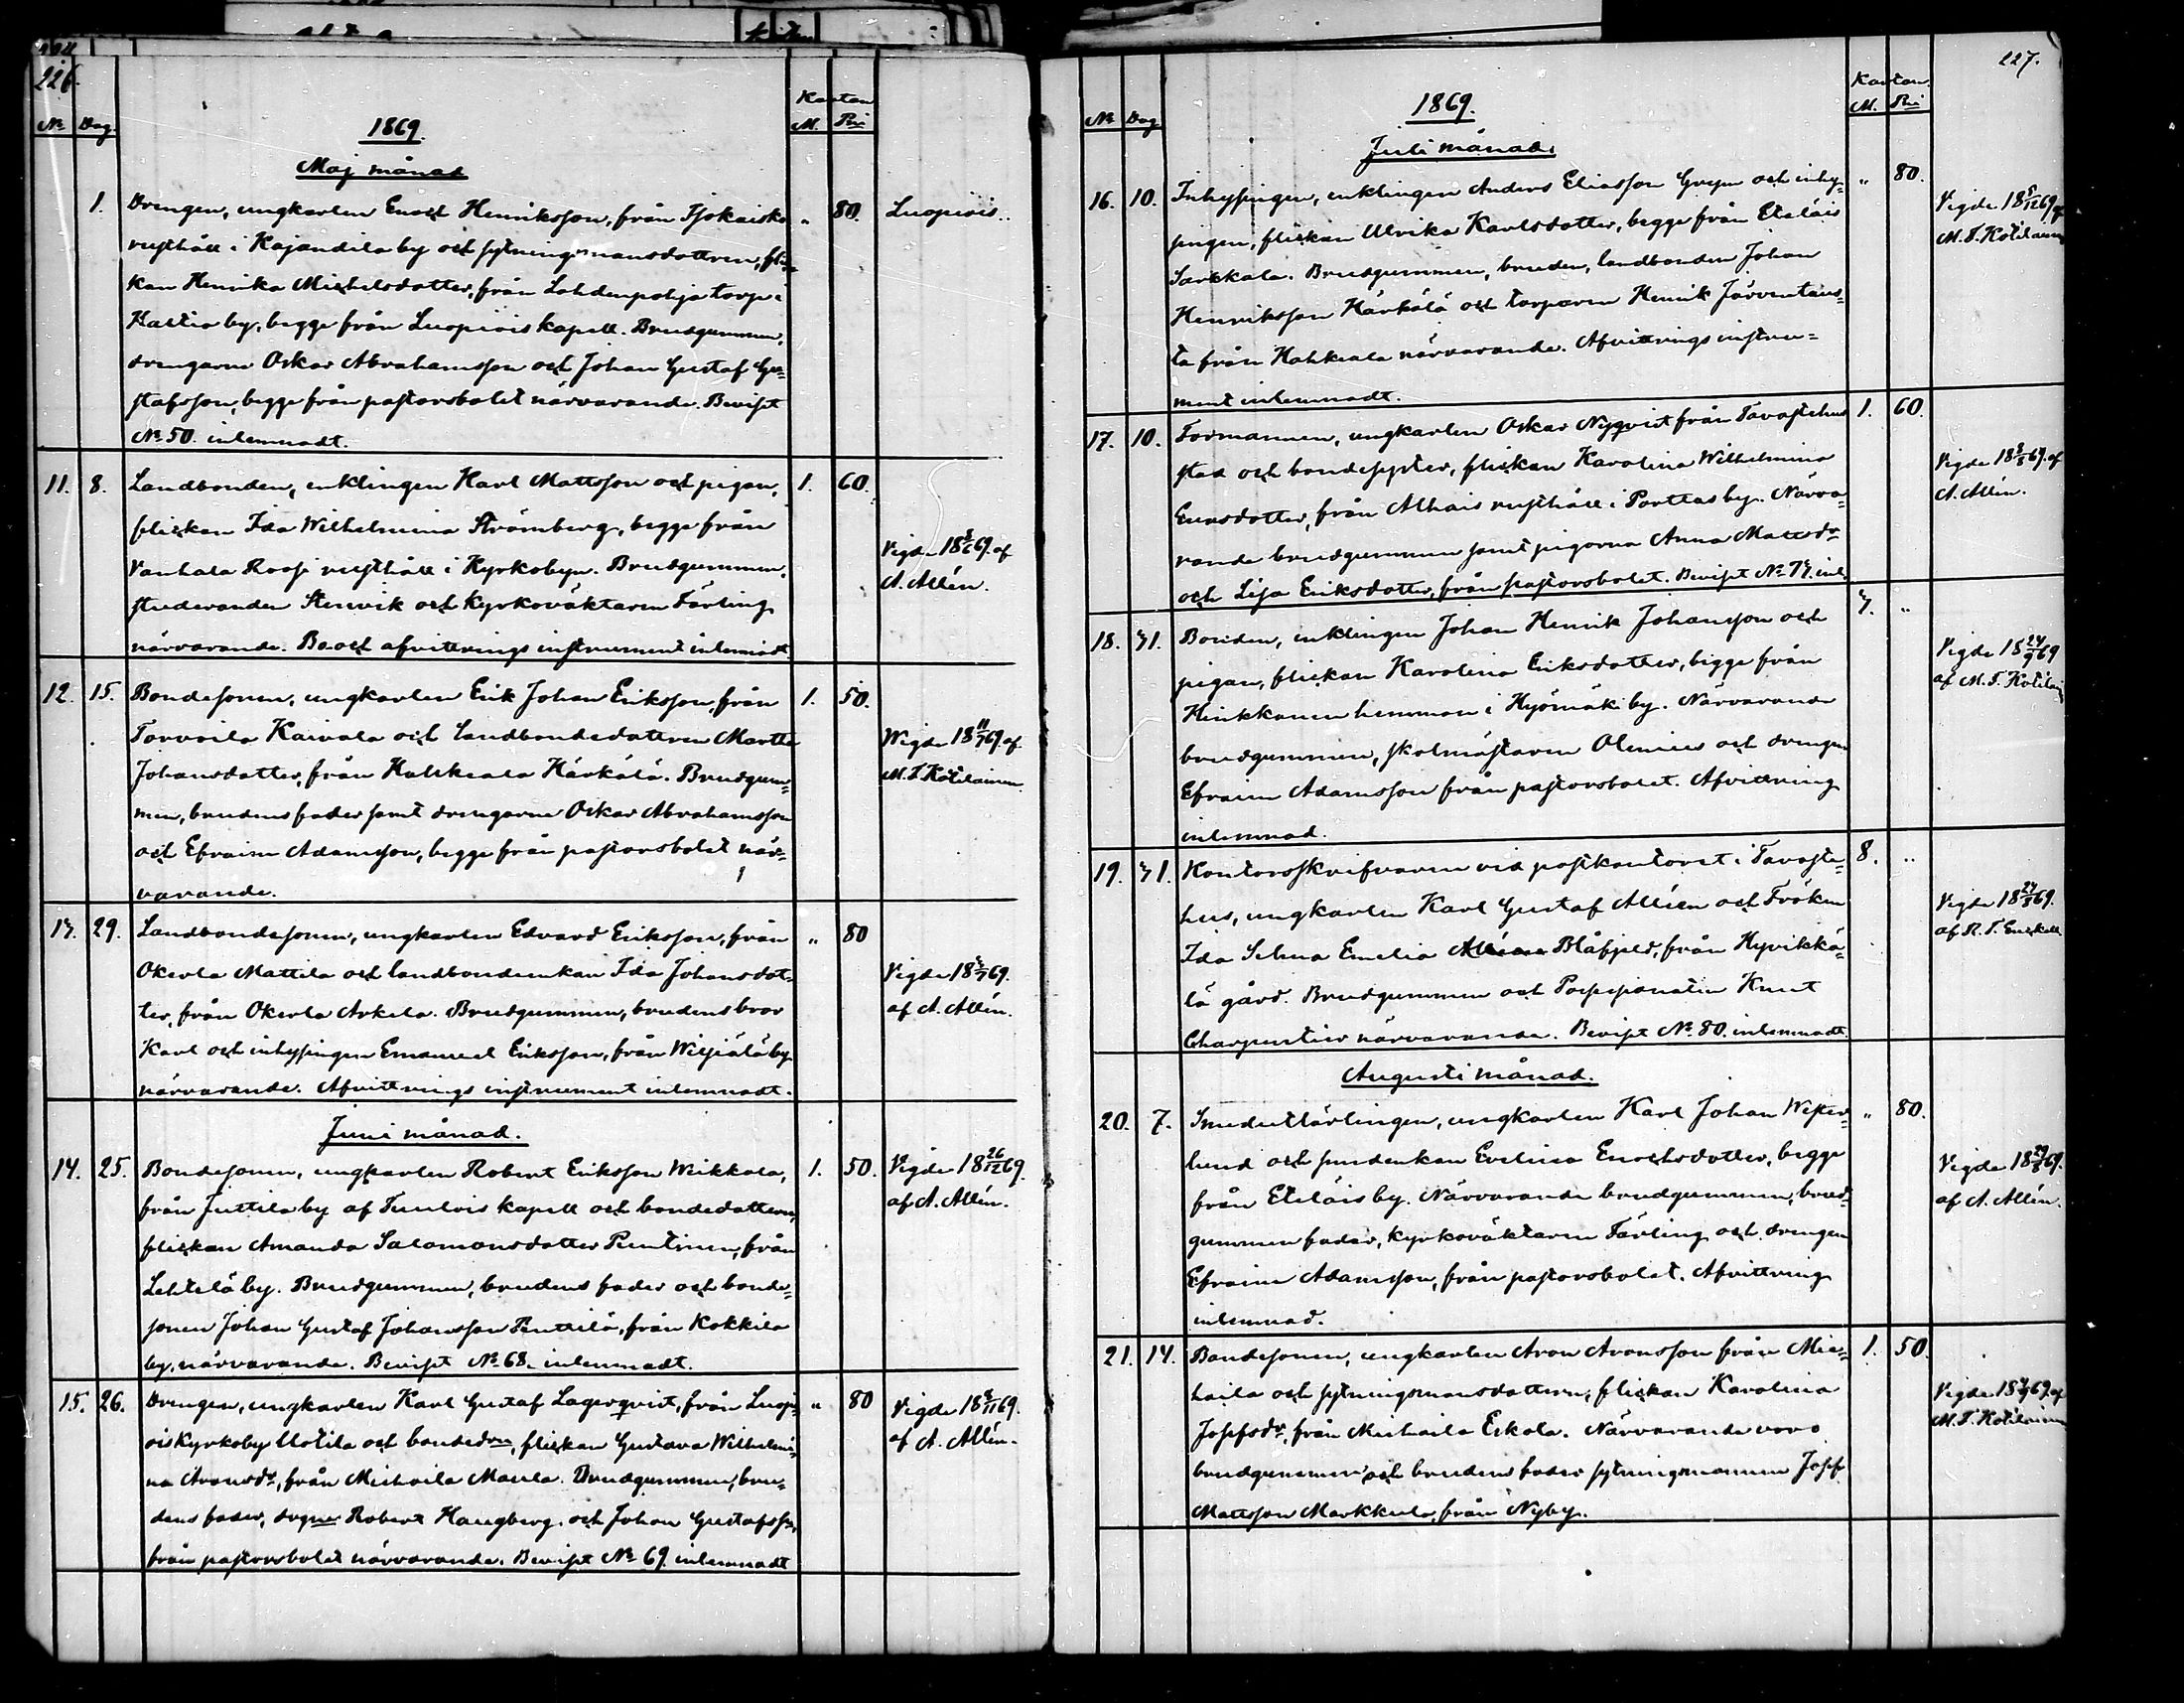 226.
No Dag.
1869.
Kantor
M. Pni
Maj månad
1. Drengen, ungkarlen Enoch Henriksson, från Isokaisko " 80. Luopiois..
rusthåll i Kajandila by och sytningsmansdottren, flic=
kan Henrika Michelsdotter, från Lahdenpohja torp i
Kastia by, begge från Luopiois kapell. Brudgummen,
drengarne Oskar Abrahamsson och Johan Gustaf Gu=
stafsson, begge från pastorsbolet närvarande. Bevist
No 50. inlemnadt.
11. 8. Landbonden, enklingen Karl Mattsson och pigan, 1. 60.
flickan Ida Wilhelmina Strömberg, begge från
Vanhala Roosi rusthåll i Kyrkobyn. Brudgummen,
studeranden Stenvik och Kyrkoväktaren Färling
närvarande. Bo och afvittrings instrument inlemnadt.
Vigde 18 6/6 69. af
A. Allén.
12. 15. Bondesonen, ungkarlen Erik Johan Eriksson, från 1. 50.
Torvoila Kaivola och landbondedottren Martha
Johansdotter, från Hahkiala Härkälä. Brudgum=
men, brudens fader samt drengarne Oskar Abrahamsson
och Efraim Adamsson, begge från pastorsbolet när=
varande.
Wigde 18 11/7 69 af
M. T. Kotilainen.
13. 29. Landbondesonen, ungkarlen Edvard Eriksson, från " 80
Okerla Mattila och landbondeenkan Ida Johansdot=
ter, från Okerla Arkela. Brudgummen, brudens bror
Karl och inhysingen Emanuel Eriksson, från Witsiälä by
närvarande. Afvittrings instrument inlemnadt.
Vigde 18 4/7 69.
af A. Allén.
Juni månad.
14. 25. Bondesonen, ungkarlen Robert Eriksson Wiikkala, 1. 50.
från Juttila by af Tuulois kapell och bondedottern,
flickan Amanda Salomonsdotter Penttinen, från
Lehtelä by. Brudgummen, brudens fader och bonde=
sonen Johan Gustaf Johansson Penttilä, från Kokkila
by, närvarande. Bevist No 68. inlemnadt.
Vigde 18 26/12 69.
af A. Allén.
15. 26. Drengen, ungkarlen Karl Gustaf Lagerqvist, från Luopi= " 80
ois Kyrkoby Uotila och bondedren, flickan Gustava Wilhelmi=
na Aronsdr, från Miehoila Maula. Brudgummen, bru=
dens fader, drgne Robert Haugberg och Johan Gustafsson,
från pastorsbolet närvarande. Bevist No 69. inlemnadt
Vigde 18 8/11 69.
af A. Allén.
227.
No Dag
1869.
Kantor.
M. Pni
Juli månad.
16. 10. Inhysingen, enklingen Anders Eliasson Greyn och inhy= " 80.
singen, flickan Ulrika Karlsdotter, begge från Eteläis
Sarkkala. Brudgummen, bruden, landbonden Johan
Henriksson Härkälä och torparen Henrik Järventaus=
ta från Hahkiala närvarande. Afvittrings instru=
ment inlemnadt.
Vigde 18 5/12 69 af
M. T. Kotilainen
17. 10. Formannen, ungkarlen Oskar Nyqvist från Tavastehus 1. 60.
stad och bondesyster, flickan Karolina Wilhelmina
Enersdotter, från Alhais rusthåll i Porttas by. Närva=
rande brudgummen samt pigorna Anna Mattsdr
och Lisa Eriksdotter, från pastorsbolet. Bevist No 73. inl.
Vigde 18 8/8 69. af
A. Allén.
18. 31. Bonden, enklingen Johan Henrik Johansson och 3. "
pigan, flickan Karolina Eriksdotter, begge från
Hinkkanen hemman i Hyömäki by. Närvarande
brudgummen, skolmästaren Olenius och drengen
Efraim Adamsson från pastorsbolet. Afvittring
inlemnad.
Vigde 18 24/9 69
af M. T. Kotilain
19. 31. Kontorsskrifvaren vid postkontoret i Tavaste= 8. "
hus, ungkarlen Karl Gustaf Allén och Fröken
Ida Selma Emelia Blåfjeld, från Hyvikkä=
lä gård. Brudgummen och Possessionaten Knut
Charpentier närvarande. Bevist No 80. inlemnadt.
Vigde 18 24/8 69.
af R. T. Enckell
Augusti månad.
20. 7. Smedultärlingen, ungkarlen Karl Johan Wester= " 80.
lund och smedenkan Evelina Enochsdotter, begge
från Eteläis by. Närvarande brudgummen, brud=
gummens fader, kyrkoväktaren Färling och drengen
Efraim Adamsson, från pastorsbolet. Afvittring
inlemnad.
Vigde 18 29/8 69.
af A. Allén.
21. 14. Bondesonen, ungkarlen Aron Aronsson från Mie= 1. 50.
hoila och sytningsmansdottren, flickan Karolina
Josefsdr, från Miehoila Eskola. Närvarande voro
brudgummen och brudens fader sytningsmannen Josef
Mattsson Markkula, från Nyby.
Vigde 18 69. af
M. T. Kotilainen